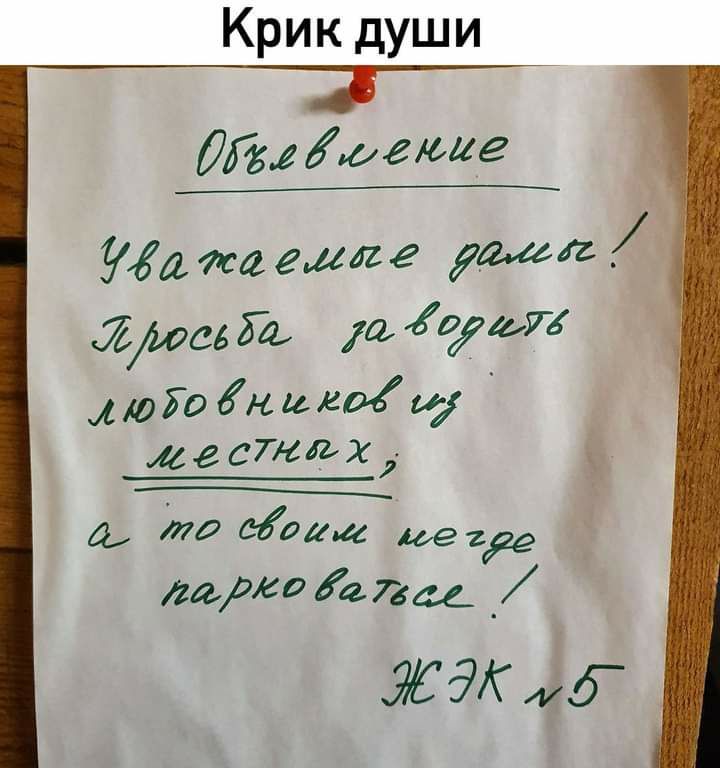 Крик души
Объявление
Уважаемые дамы!
Просьба заводить
любовников из
местных,
а то своим негде
парковаться!
ЖЭК №5